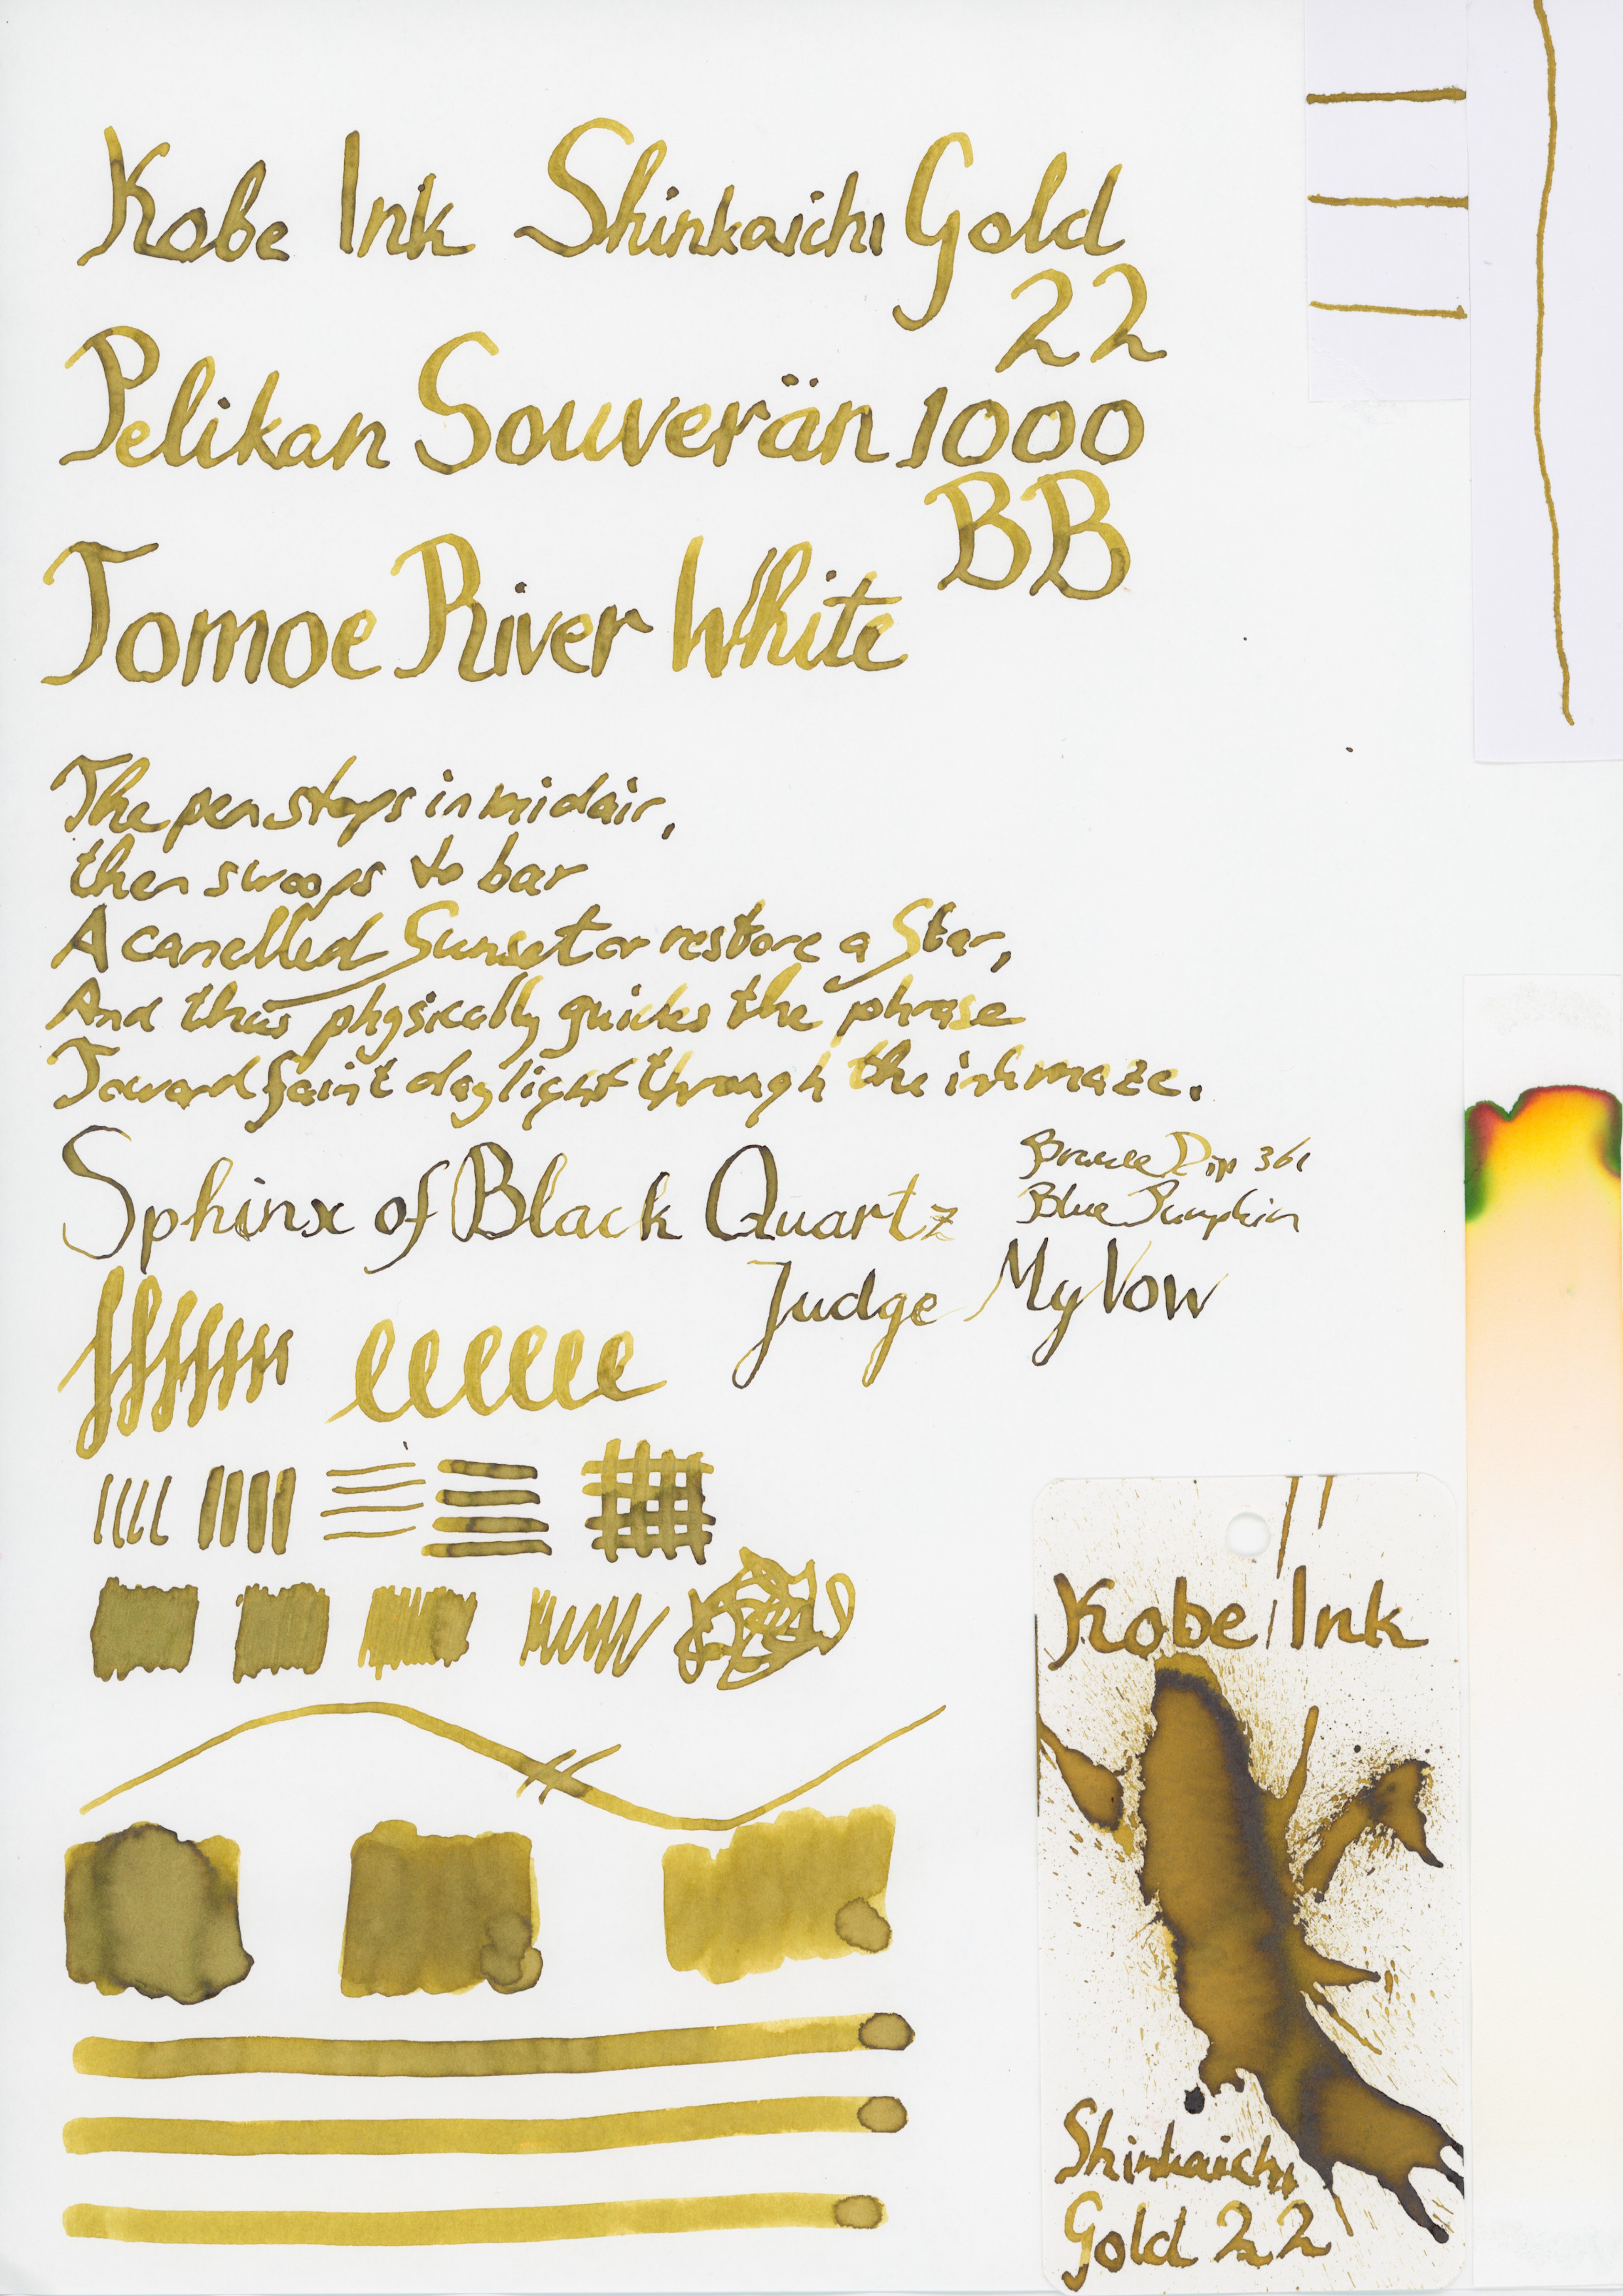 Kobe Ink Shinkaichi Gold
22
Pelikan Souverän 1000
BB
Tomoe River White
The pen stops in midair,
then swoops to bar
A canelled Sunset or restore a Star,
And thus physically guides the phrase
Toward faint daylight through the inkmaze.
Sphinx of Black Quartz
Brause Dip 361
Blue Pumpkin
Judge My Vow
Kobe Ink
Shinkaichi
Gold 22